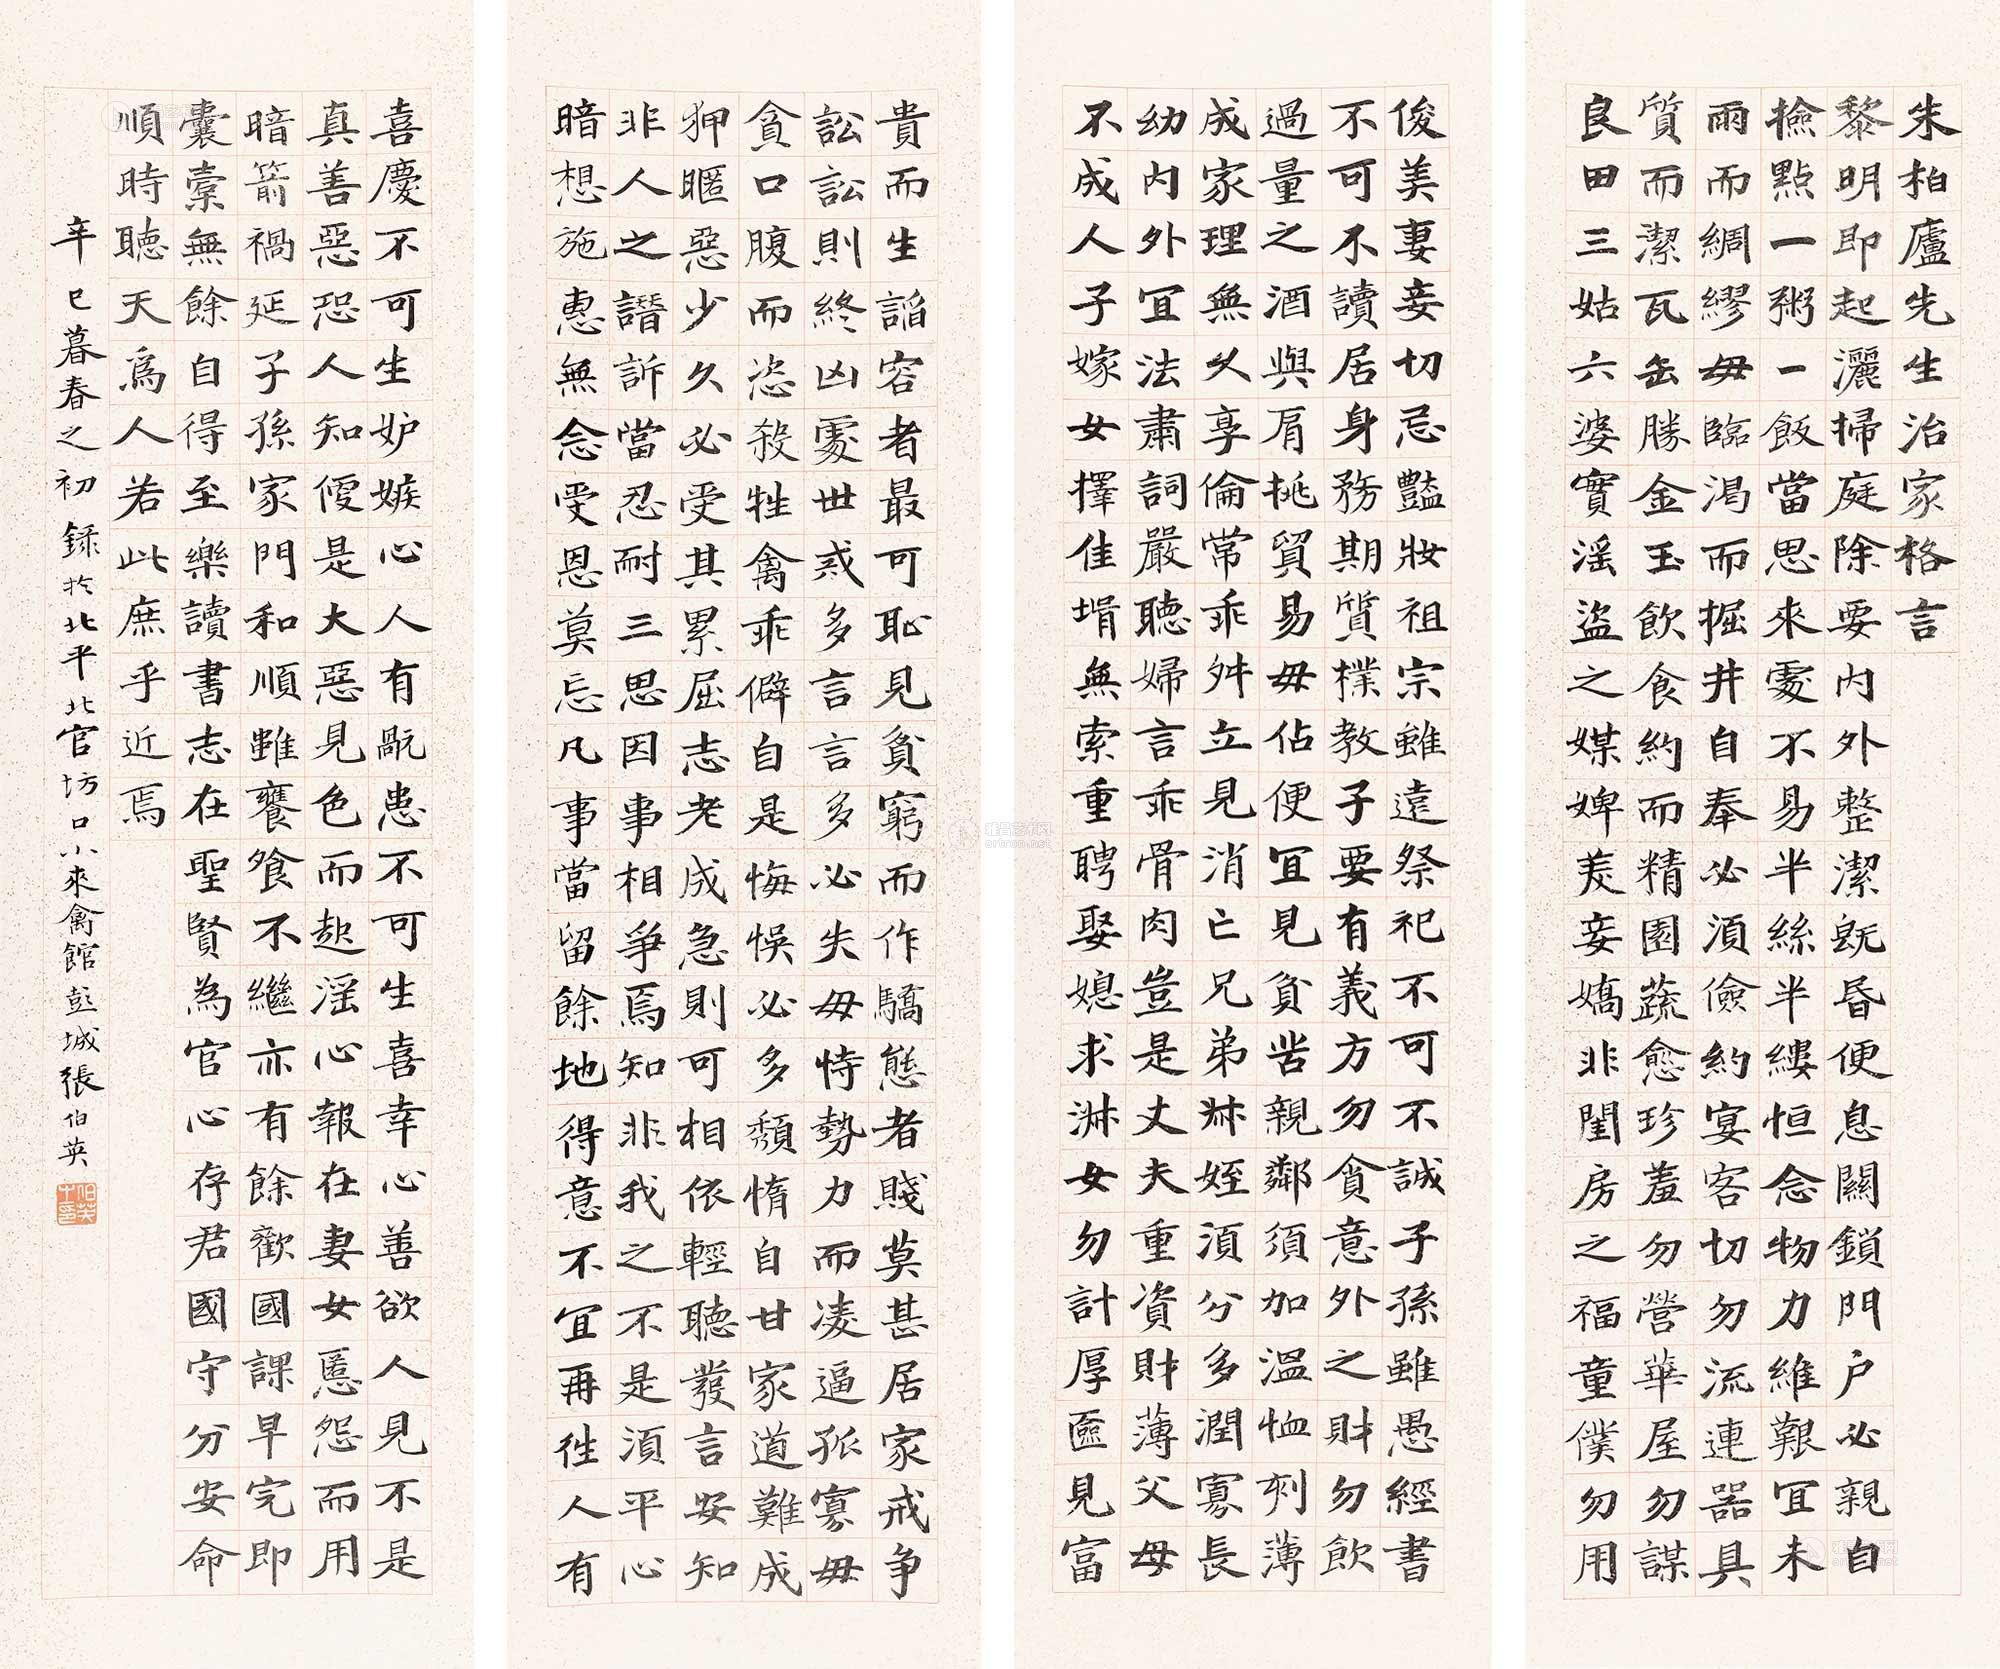 朱柏廬先生治家格言
黎明即起灑掃庭除要內外整潔既昏便息關鎖門户必親自
撿點一粥一飯當思來處不易半絲半縷恒念物力維艱宜未
雨而綢繆毋臨渴而掘井自奉必湏儉約宴客切勿流連器具
質而潔瓦缶勝金玉飲食約而精園蔬愈珍羞勿營華屋勿謀
良田三姑六婆實淫盜之媒婢美妾嬌非閨房之福童僕勿用
俊美妻妾切忌豔妝祖宗雖遠祭祀不可不誠子孫雖愚經書
不可不讀居身務期質樸教子要有義方勿貪意外之財勿飲
過量之酒與肩挑貿易毋佔便宜見貧苦親鄰須加溫恤刻薄
成家理無久享倫常乖舛立見消亡兄弟叔姪湏分多潤寡長
幼內外宜法肅詞嚴聽婦言乖骨肉豈是丈夫重資財薄父母
不成人子嫁女擇佳壻無索重聘娶媳求淑女勿計厚匳見富
貴而生諂容者最可恥見貧窮而作驕態者賤莫甚居家戒爭
訟訟則終凶處世戒多言言多必失毋恃勢力而凌逼孤寡毋
貪口腹而恣殺牲禽乖僻自是悔悞必多頹惰自甘家道難成
狎暱惡少久必受其累屈志老成急則可相依輕聽發言安知
非人之譖訴當忍耐三思因事相爭焉知非我之不是湏平心
暗想施惠無念受恩莫忘凡事當留餘地得意不宜再往人有
喜慶不可生妒嫉心人有禍患不可生喜幸心善欲人見不是
真善惡恐人知便是大惡見色而起淫心報在妻女匿怨而用
暗箭禍延子孫家門和順雖饔飧不繼亦有餘歡國課早完即
囊橐無餘自得至樂讀書志在聖賢為官心存君國守分安命
順時聽天爲人若此庶乎近焉
辛巳暮春之初錄於北平北官坊口小來禽館彭城張伯英